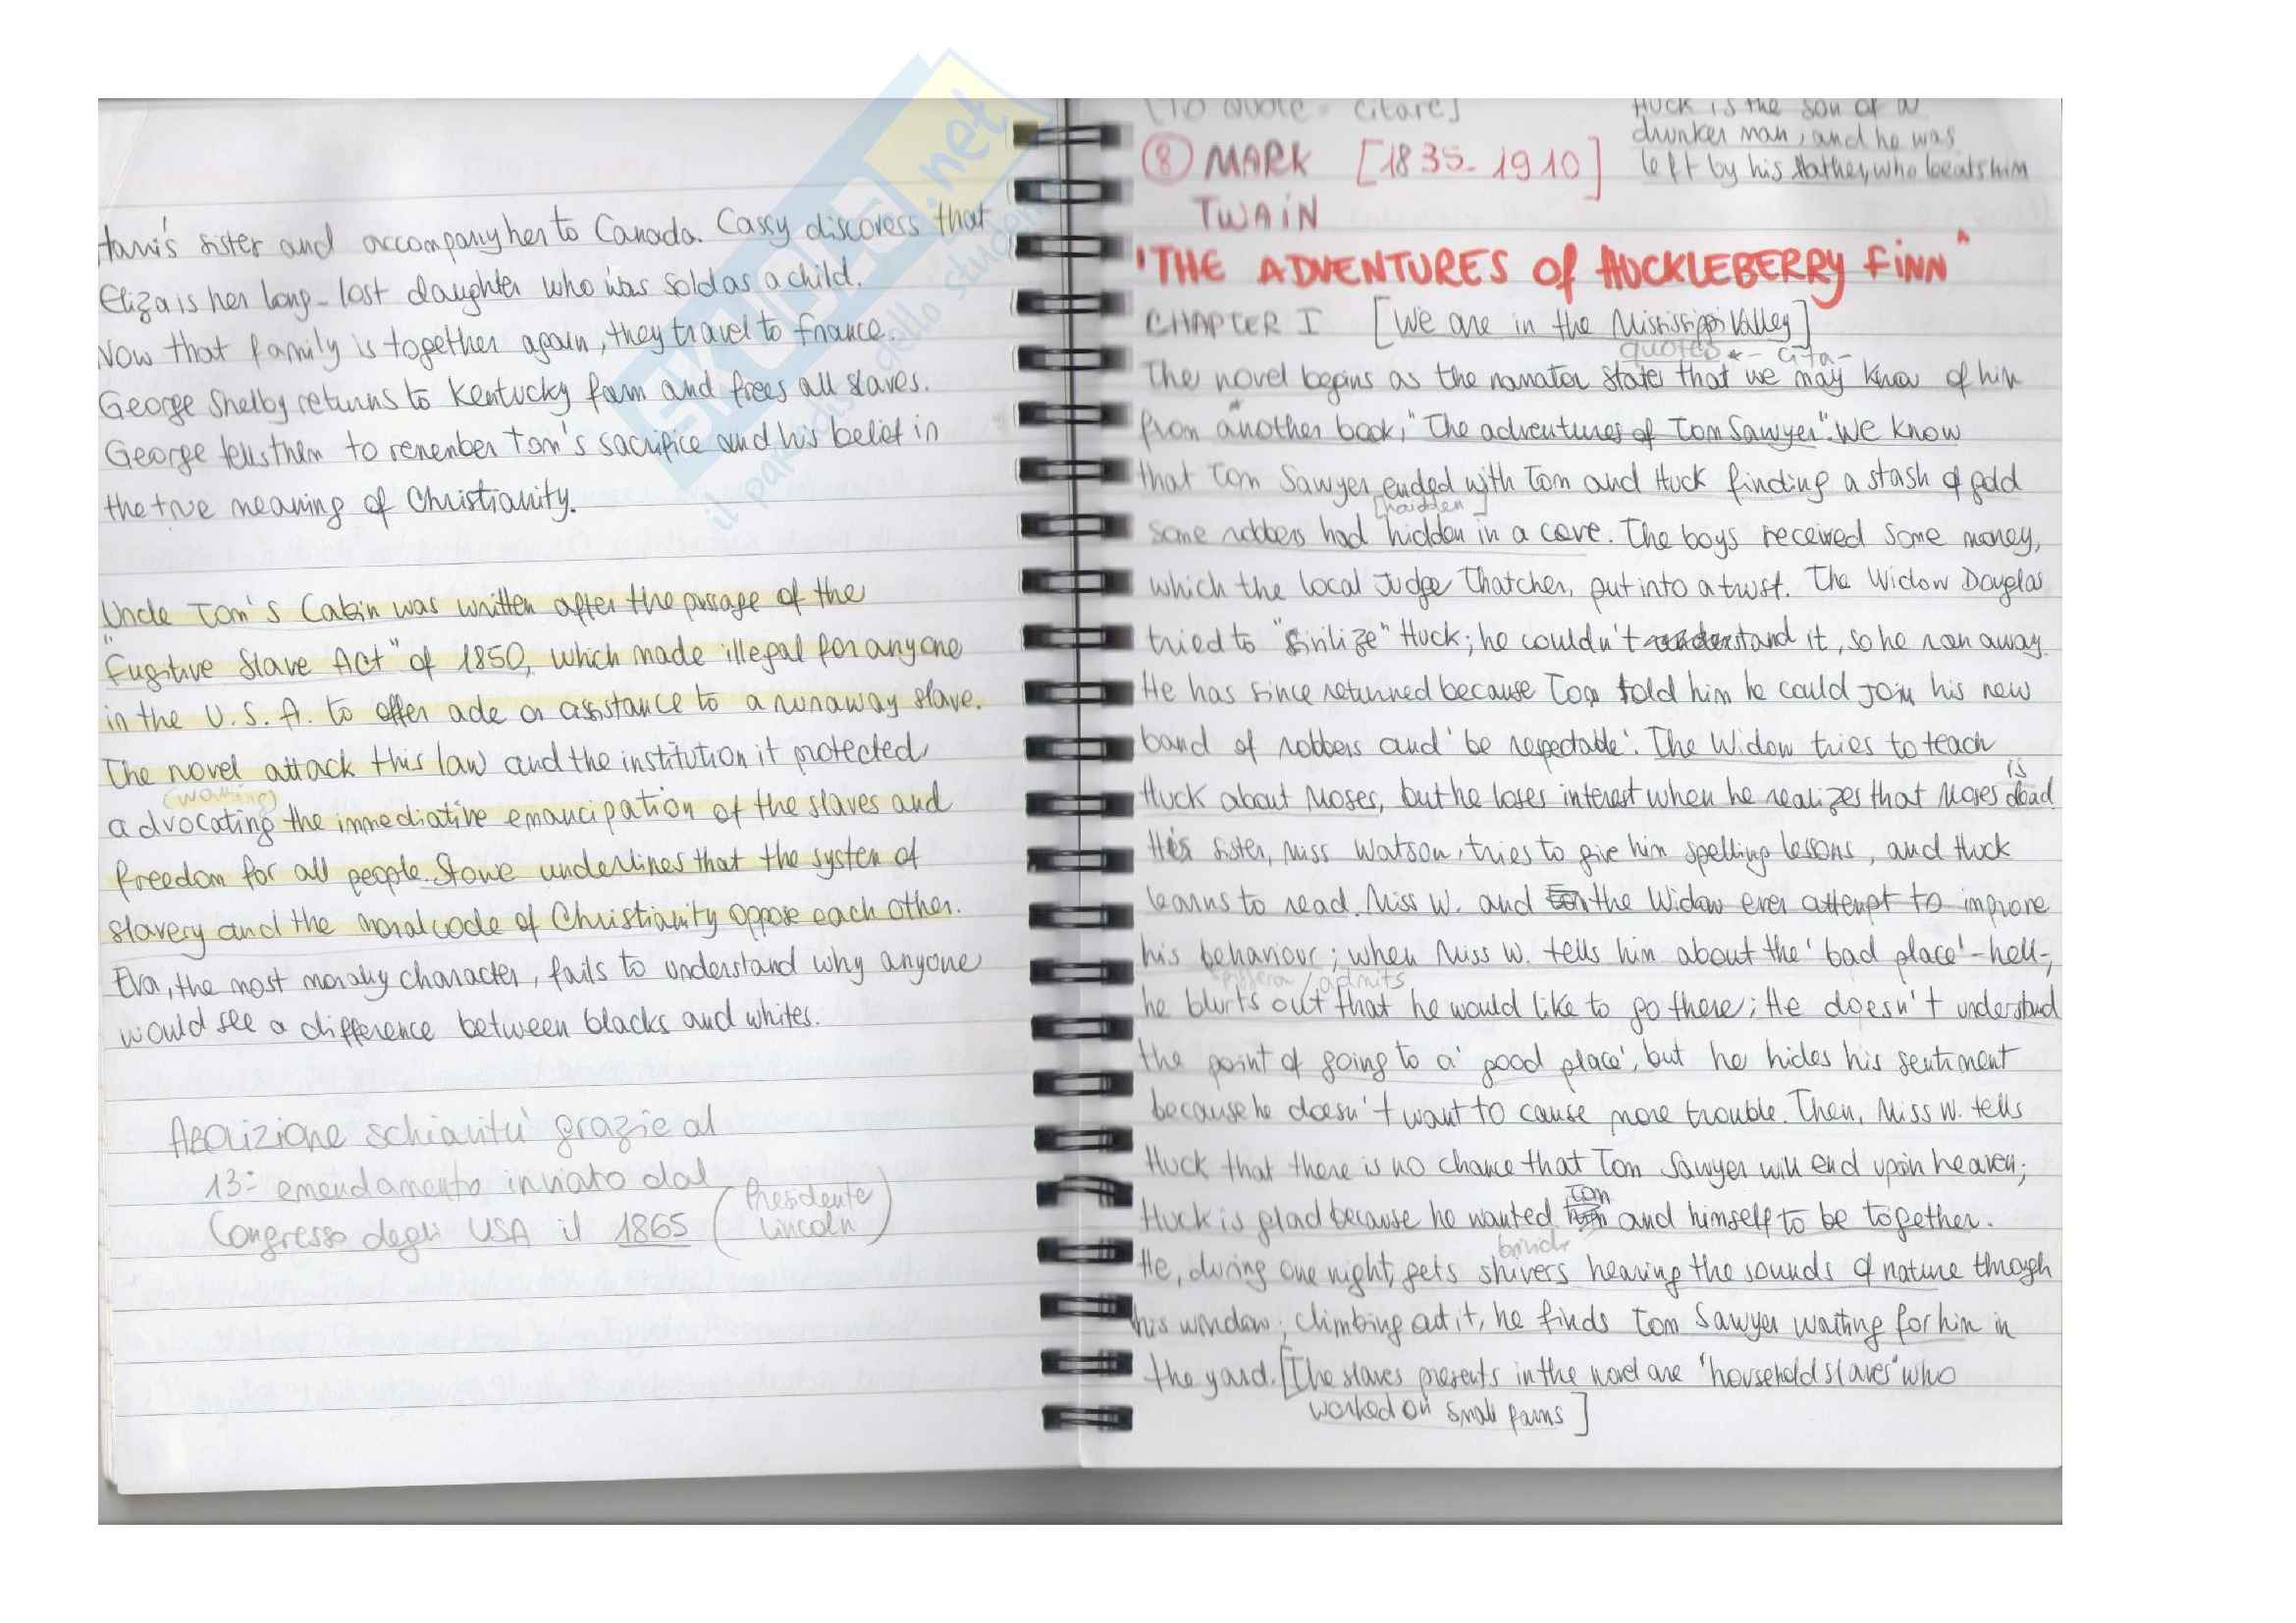 Harris sister and accompany her to Canada. Cassy discovers that
Eliza is her long-lost daughter who was sold as a child.
Now that family is together again, they travel to France.
George Shelby returns to Kentucky farm and frees all slaves.
George tells them to remember Tom's sacrifice and his belief in
the true meaning of Christianity.
Uncle Tom's Cabin was written after the passage of the
"Fugitive Slave Act" of 1850, which made illegal for anyone
in the U.S.A. to offer ade or assistance to a runaway slave.
The novel attack this law and the institution it protected
advocating the immediative emancipation of the slaves and
freedom for all people. Stowe underlines that the system of
slavery and the moral code of Christianity oppose each other.
Eva, the most moraly character, fails to understand why anyone
would see a difference between blacks and whites.
Abolizione schiavitù grazie al
13° emendamento inviato dal
Congresso degli USA il 1865 (Presidente
Lincoln)
[To quote = citare]
Huck is the son of a
drunker man, and he was
left by his father, who beats him
⑧ MARK [1835-1910]
TWAIN
"THE ADVENTURES Of HUCKLEBERRY FINN"
CHAPTER I [We are in the Mississippi Valley]
quotes ← cita
The novel begins as the narrator states that we may know of him
from another book, "The adventures of Tom Sawyer". We know
that Tom Sawyer ended with Tom and Huck finding a stash of gold
some robbers had hidden in a cave. The boys received some money,
which the local Judge Thatcher, put into a trust. The Widow Douglas
tried to "sivilize" Huck; he couldn't stand it, so he ran away.
He has since returned because Tom told him he could join his new
band of robbers and 'be respectable'. The Widow tries to teach
Huck about Moses, but he loses interest when he realizes that Moses is dead
His sister, Miss Watson, tries to give him spelling lessons, and Huck
learns to read. Miss W. and the Widow ever attempt to improve
his behaviour; when Miss W. tells him about the 'bad place'-hell-,
admits
he blurts out that he would like to go there; He doesn't understand
the point of going to a 'good place', but he hides his sentiment
because he doesn't want to cause more trouble. Then, Miss W. tells
Huck that there is no chance that Tom Sawyer will end up in heaven;
Huck is glad because he wanted Tom and himself to be together.
He, during one night, gets shivers hearing the sounds of nature through
his window; climbing out it, he finds Tom Sawyer waiting for him in
the yard. [The slaves presents in the novel are 'household slaves' who
worked on small farms]
SKUOLA.net
il paradiso dello studente